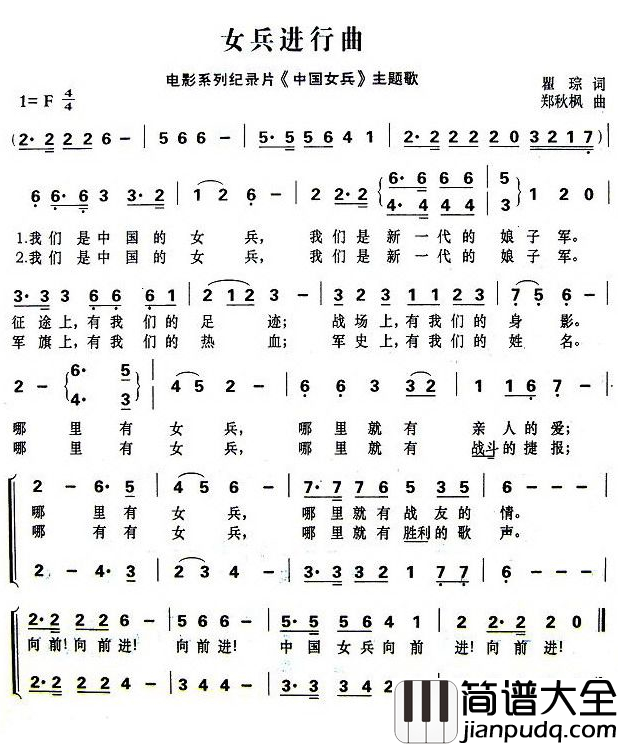 女兵进行曲
电影系列纪录片《中国女兵》主题歌
1=F 4/4
瞿 琮 词
郑秋枫 曲
(2· 2 2 2 6 - | 5 6 6 - | 5· 5 5 6 1 - | 2· 2 2 2 2 2 0 3 2 1 7)
6 6· 6 3 3· 2 | 1 2 6 - | 2 0 2· 2 6· 6 6 6 | 5 1 2 0
4· 4 4 4 | 3
1.我们是中国的女兵, 我们是新一代的娘子军。
2.我们是中国的女兵, 我们是新一代的娘子军。
3· 3 3 6 6 6 1 | 2 1 2 3 - | 2· 3 2 3 1 1 2 3 | 7 5 6 -
征途上,有我们的足迹; 战场上,有我们的身影。
军旗上,有我们的热血; 军史上,有我们的姓名。
2 - 6· 5 | 4 5 2 - | 6 6 3 3 2 | 1 1 6 7 -
4· 3
哪里有女兵, 哪里就有亲人的爱;
哪里有女兵, 哪里就有战斗的捷报;
2 - 6· 5 | 4 5 6 - | 7· 7 7 6 5 3 5 | 6 - - -
哪里有女兵, 哪里就有战友的情。
哪有有女兵, 哪里就有胜利的歌声。
2 - 4· 3 | 2 2 2 - | 3· 3 3 2 1 7 7 | 6 - - -
2· 2 2 2 6 - | 5 6 6 - | 5· 5 5 6 4 - | 2· 2 2 2 6 -
向前!向前进! 向前进! 中国女兵向前进!向前进!
2· 2 2 2 3 -
简谱大全
jianpudq.com